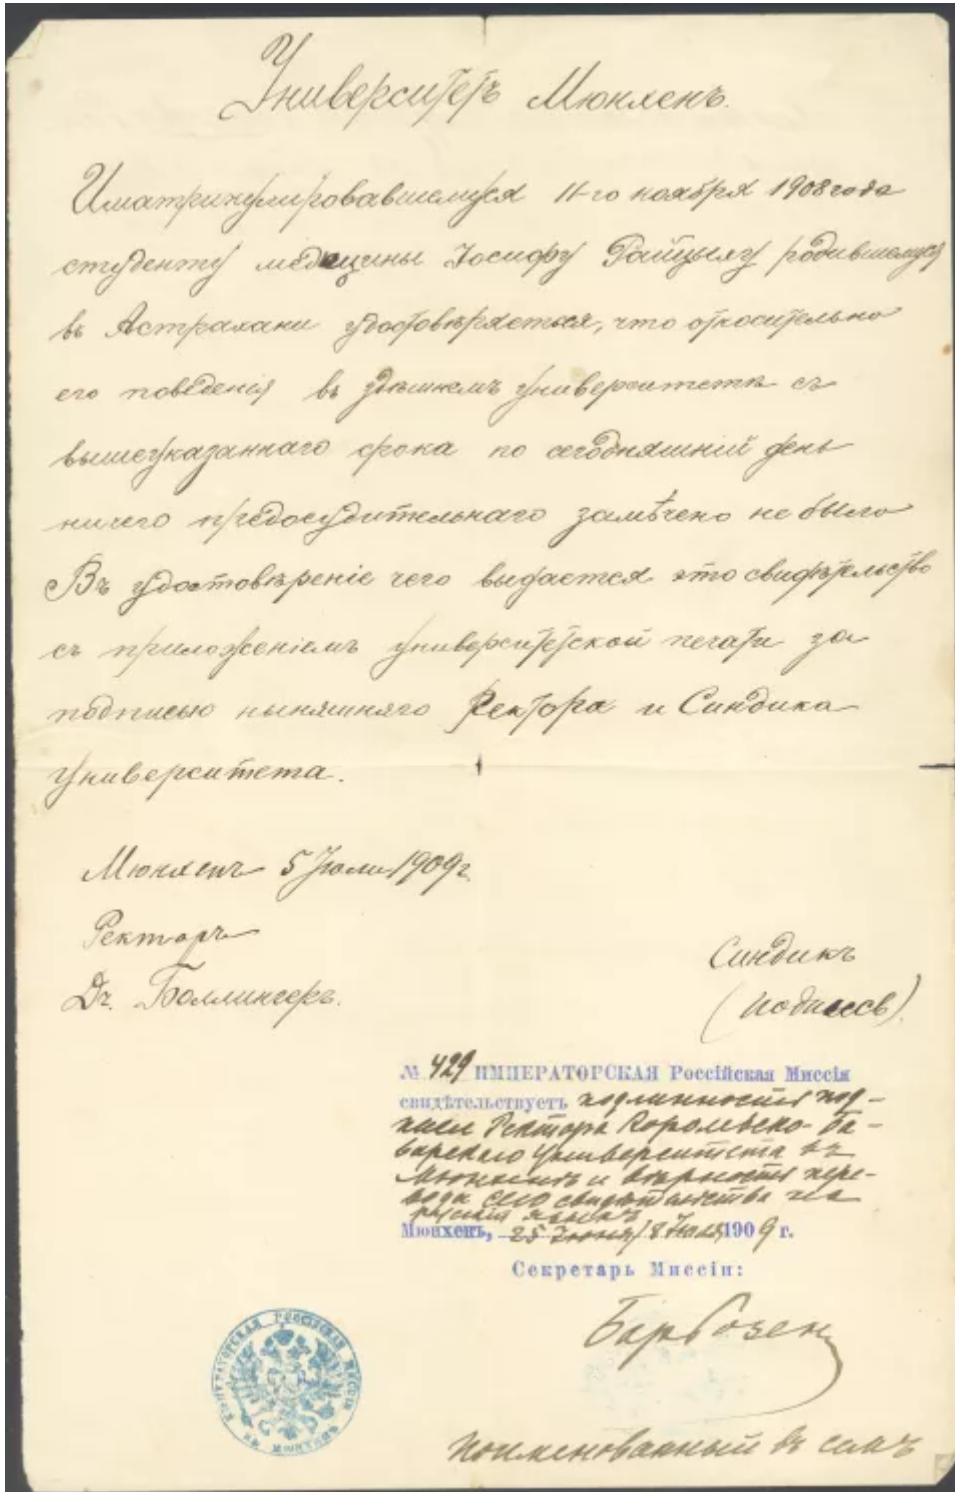 Университетъ Мюнхенъ.
Иматрикулировавшемуся 11-го ноября 1908 года
студенту медицины Іосифу Райцыну родившемуся
въ Астрахани удостовѣряется, что относительно
его поведенія въ здѣшнемъ университетѣ съ
вышеуказаннаго срока по сегодняшній день
ничего предосудительнаго замѣчено не было
Въ удостовѣреніе чего выдается это свидѣтельство
съ приложеніемъ университетской печати за
подписью нынѣшняго Ректора и Синдика
университета.
Мюнхенъ 5 Іюли 1909 г
Ректоръ
Dr. Боллингеръ.
Синдикъ
(подпись).
№ 429 ИМПЕРАТОРСКАЯ Россійская Миссія
свидѣтельствуетъ подлинность под-
писи Ректора Королевско-Ба-
варскаго Университета въ
Мюнхенѣ и вѣрность пере-
вода сего свидѣтельства на
русскій языкъ
Мюнхенъ, 25 Іюня / 8 Іюля 1909 г.
Секретарь Миссіи:
ИМПЕРАТОРСКАЯ РОССІЙСКАЯ МИССІЯ
ВЪ МЮНХЕНѢ
поименованный въ семъ